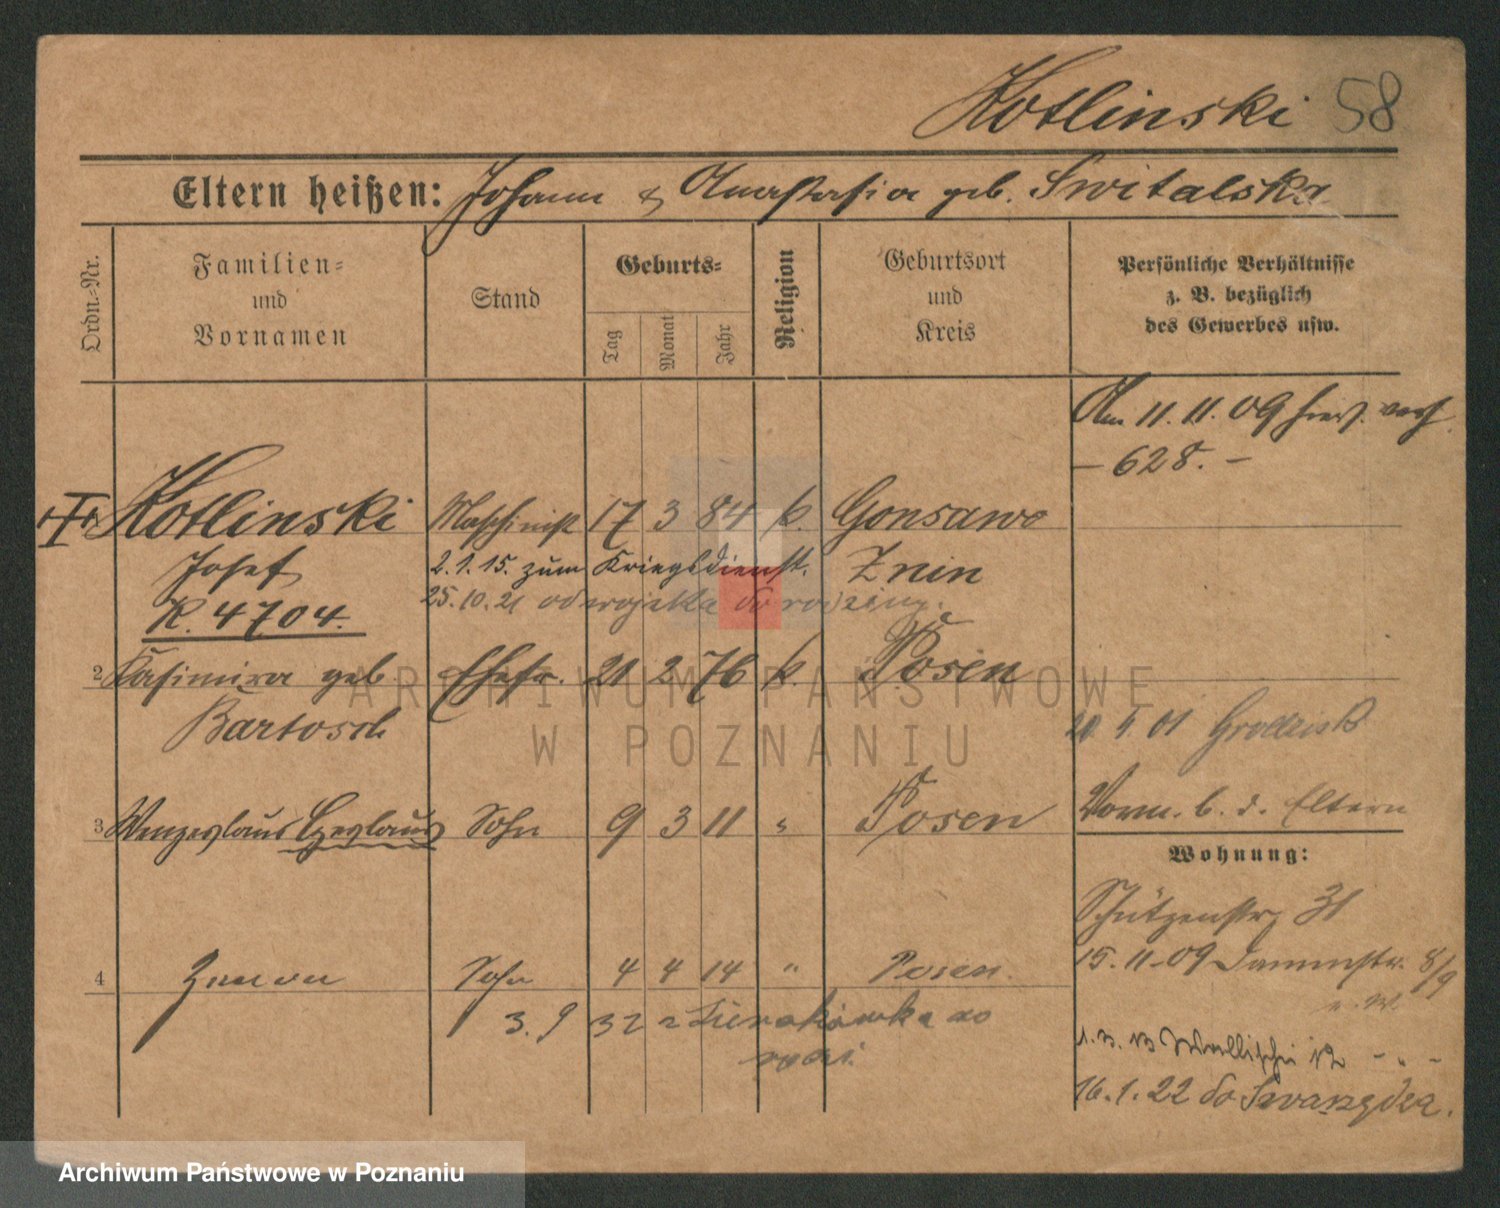 Kotlinski 58
Eltern heißen: Johann & Anastasia geb. Switalska
Ordn.-Nr.
Familien-
und
Vornamen
Stand
Geburts-
Tag
Monat
Jahr
Religion
Geburtsort
und
Kreis
Persönliche Verhältnisse
z. B. bezüglich
des Gewerbes usw.
Am 11.11.09 hier verh.
– 628. –
Kotlinski Maschinist 17 3 84 k. Gonsawo
Josef 2.1.15. zum Kriegsdienst. Znin
25.10.21 od wojska do rodziny.
K. 4704.
2 Kasimira geb Ehefr. 21 2 76 k. Posen
Bartosch
4.01 Grodzisk
Vorm. b. d. Eltern
3 Wenzeslaus Czeslaus Sohn 9 3 11 " Posen
Wohnung:
Schützenstr 31
15.11.09 Dammstr. 8/9
4 Zenon Sohn 4 4 14 " Posen.
3.9 32 z Sierakówka do
1.3.13 Wallischei 12 - " -
16.1.22 do Swarzędza.
ARCHIWUM PAŃSTWOWE
W POZNANIU
Archiwum Państwowe w Poznaniu